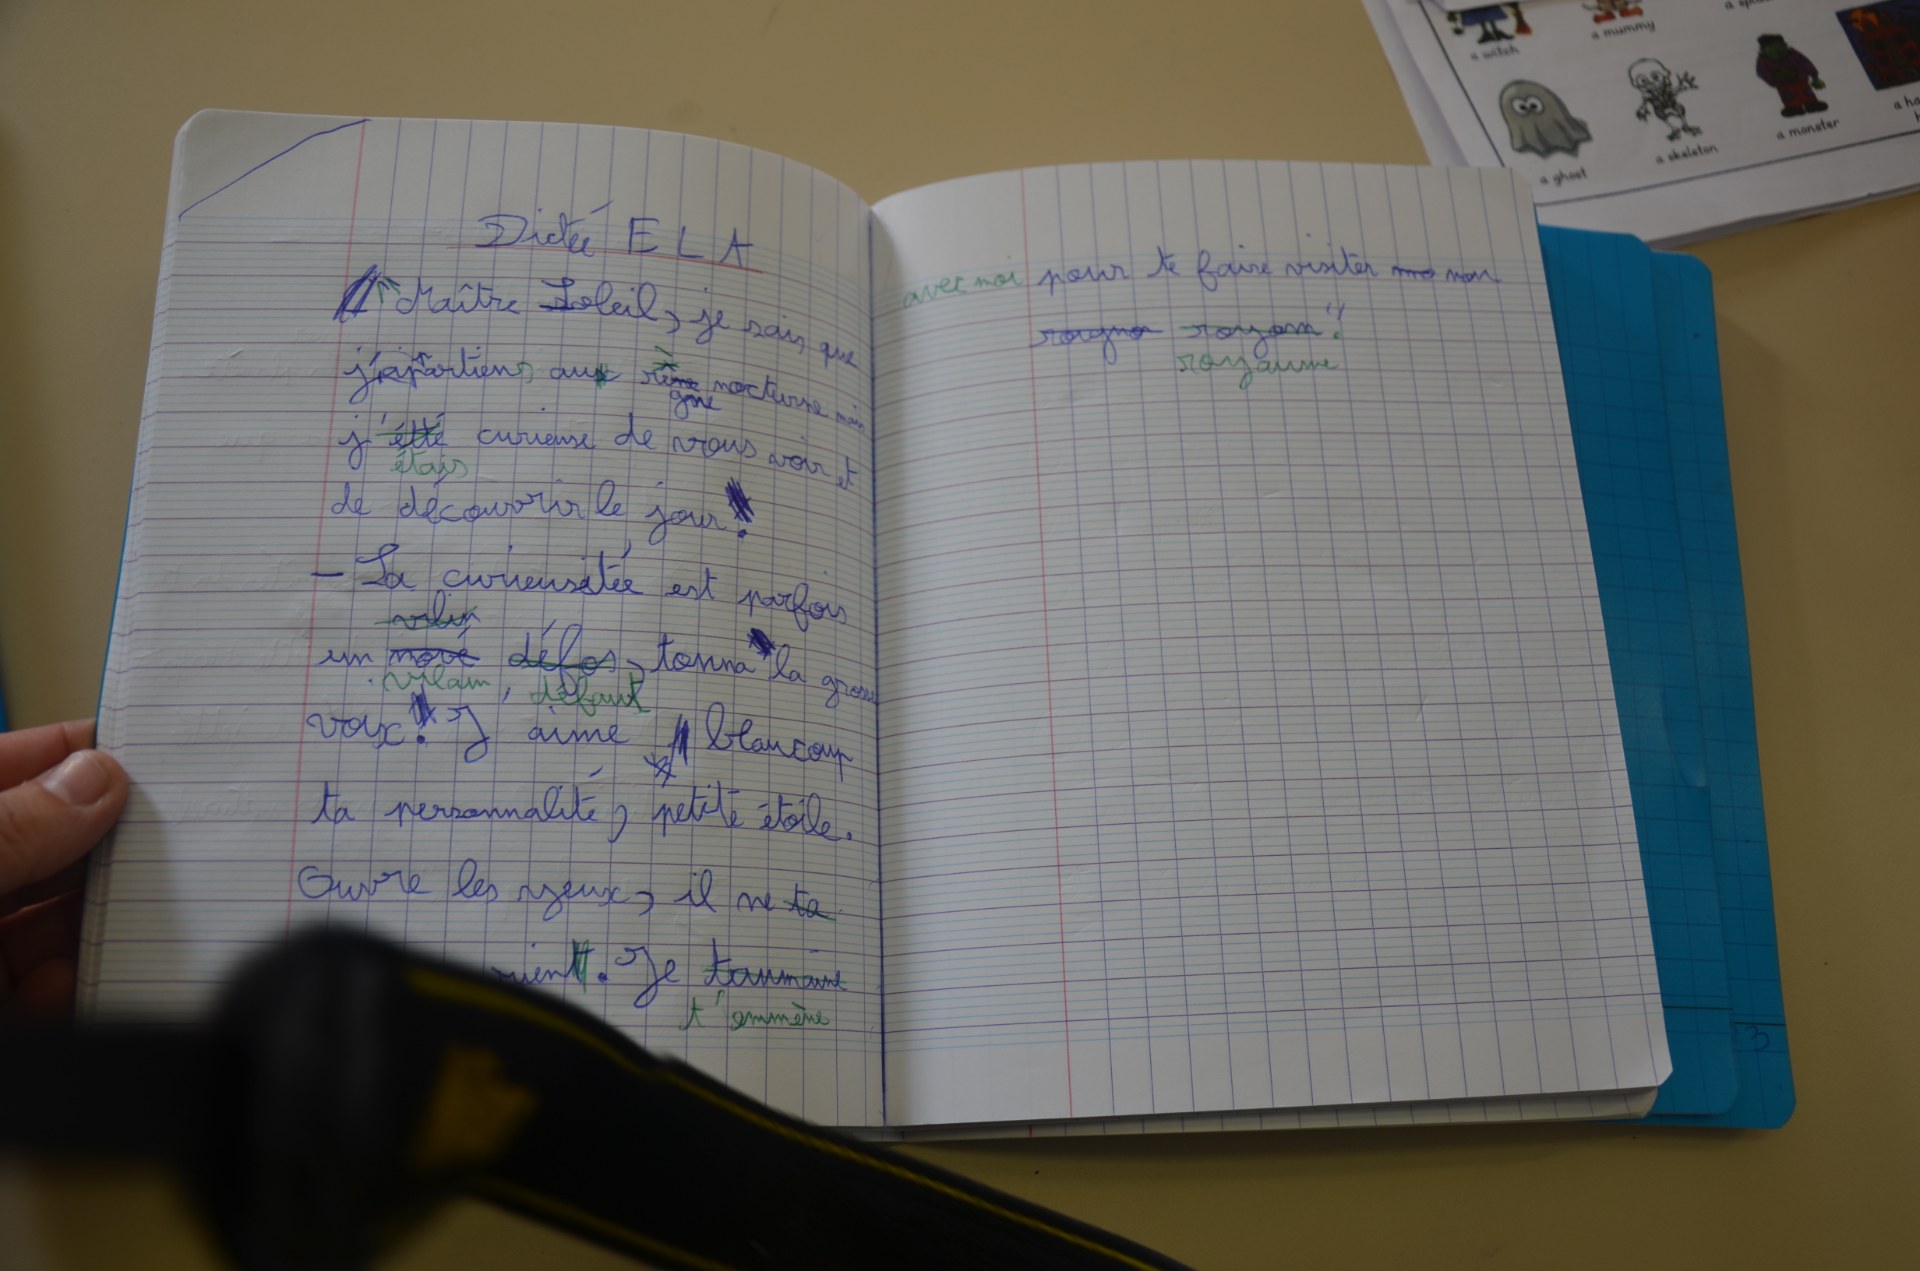 Dictée E L A
Maître Soleil, je sais que
j'apartiens au règne nocturne mais
j'étté curieuse de vous voir et
étais
de découvrir le jour!
- La curieusitée est parfois
vilin
un mové défos, tonna la grosse
vilain, défaut
voix! J aime beaucoup
ta personnalité, petite étoile.
Ouvre les yeux, il ne ta
rien. Je taumaine
t'emmène
avec moi pour te faire visiter mo mon
roygno royom!
royaume
a witch
a mummy
a ghost
a skeleton
a monster
a ha
3